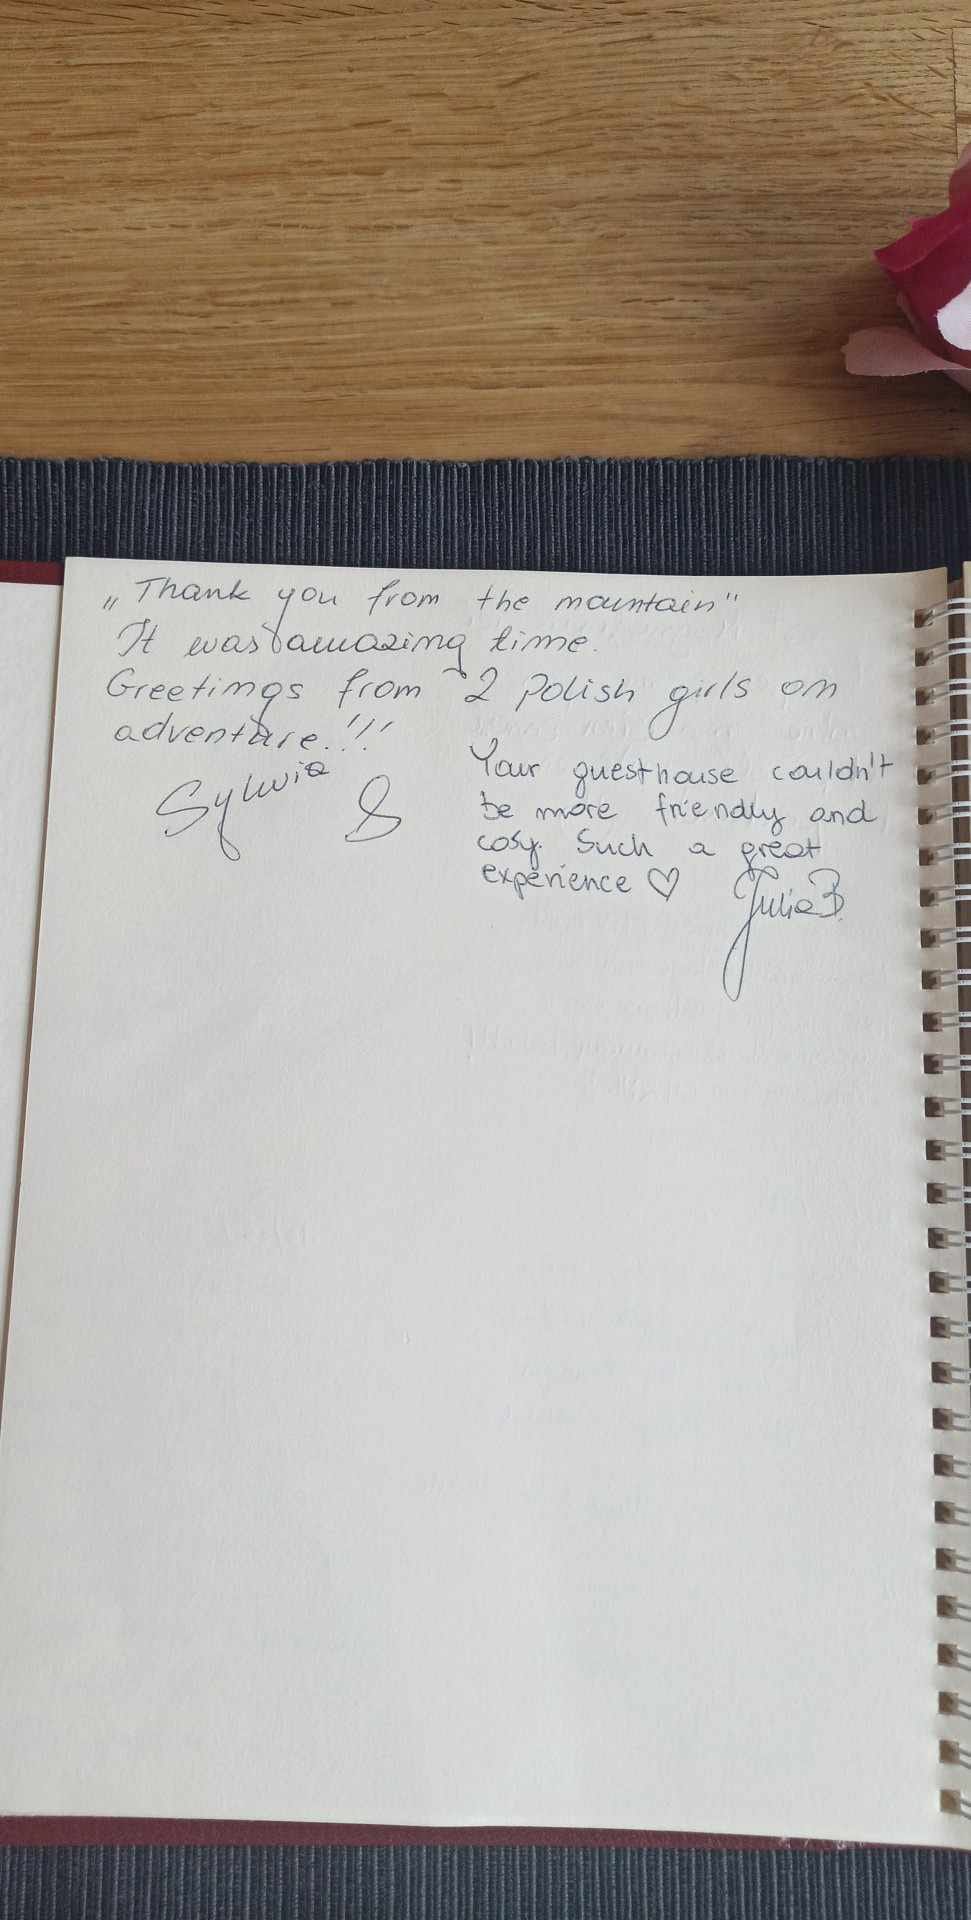 „Thank you from the mountain"
It was amazing time.
Greetings from 2 Polish girls on
adventure!!!
Sylwia S
Your guesthouse couldn't
be more friendly and
cosy. Such a great
experience ♡ Julia B.